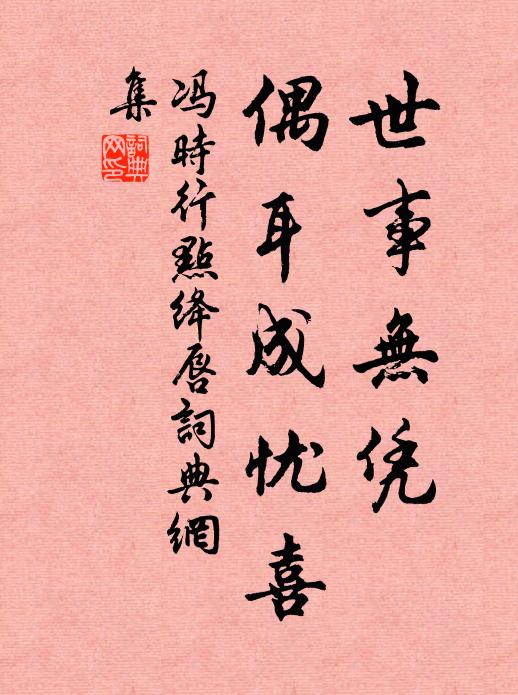 世事無凭
偶耳成忧喜
冯時行點绛唇詞典網
集
詞典
网印